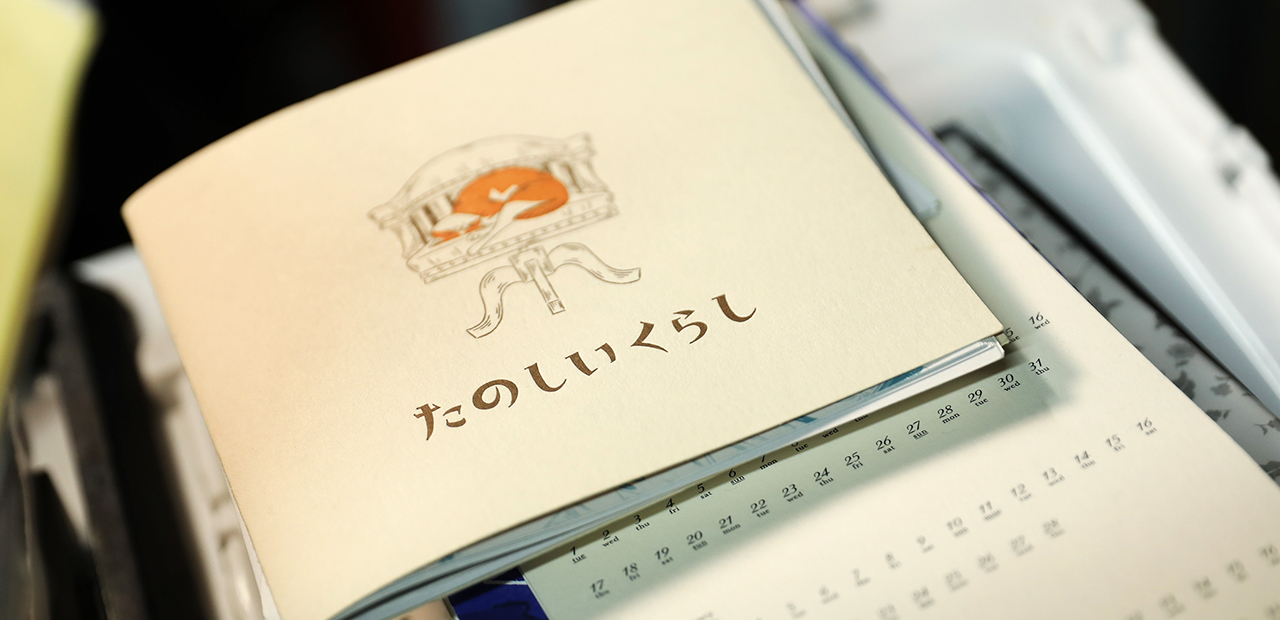 たのしいくらし
1 2 3 4 5 6 7 16
tue wed thu fri sat sun mon tue wed wed
17 18 19 20 21 22 23 24 25 26 27 28 29 30 31
thu fri sat sun mon tue wed thu fri sat sun mon tue wed thu
5 6 7 8 9 10 11 12 13 14 15 16
23 24 25 26 27 28